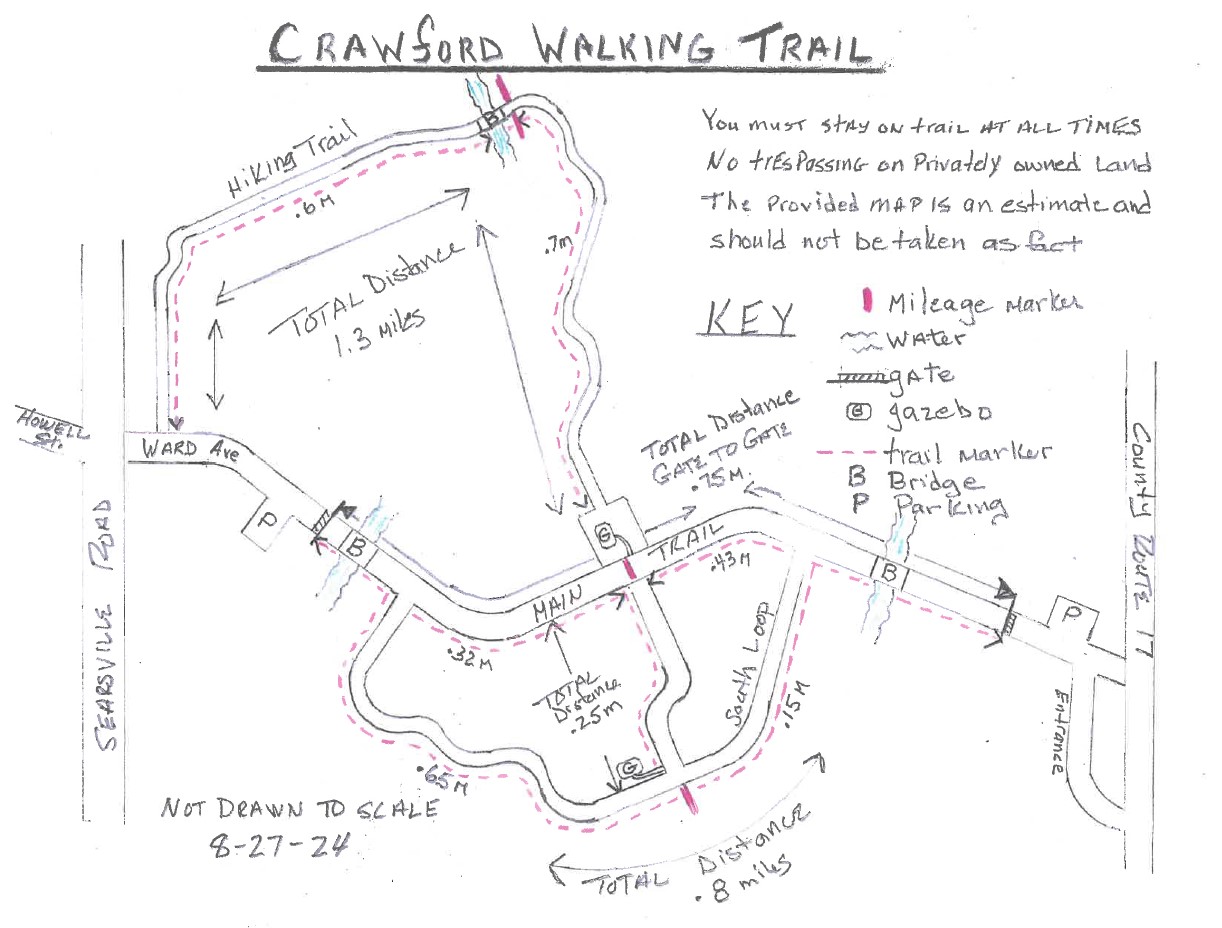 CRAWfORD WALKING TRAIL
You must stay on trail AT ALL TIMES
No tresPassing on Privately owned Land
The Provided MAP IS an estimate and
should not be taken as fact
KEY
Mileage Marker
Water
gate
G gazebo
trail marker
B Bridge
P Parking
Hiking Trail
.6M
B
.7m
TOTAL Distance
1.3 Miles
HOWELL
St.
WARD Ave
P
B
SEARSVILLE ROAD
TOTAL Distance
GATE TO GATE
.75M.
G
MAIN TRAIL
.43M
.32M
TOTAL
Distance
.25m
South Loop
.15M
B
P
Entrance
County Route 17
G
.65M
NOT DRAWN TO SCALE
8-27-24
TOTAL Distance
.8 miles